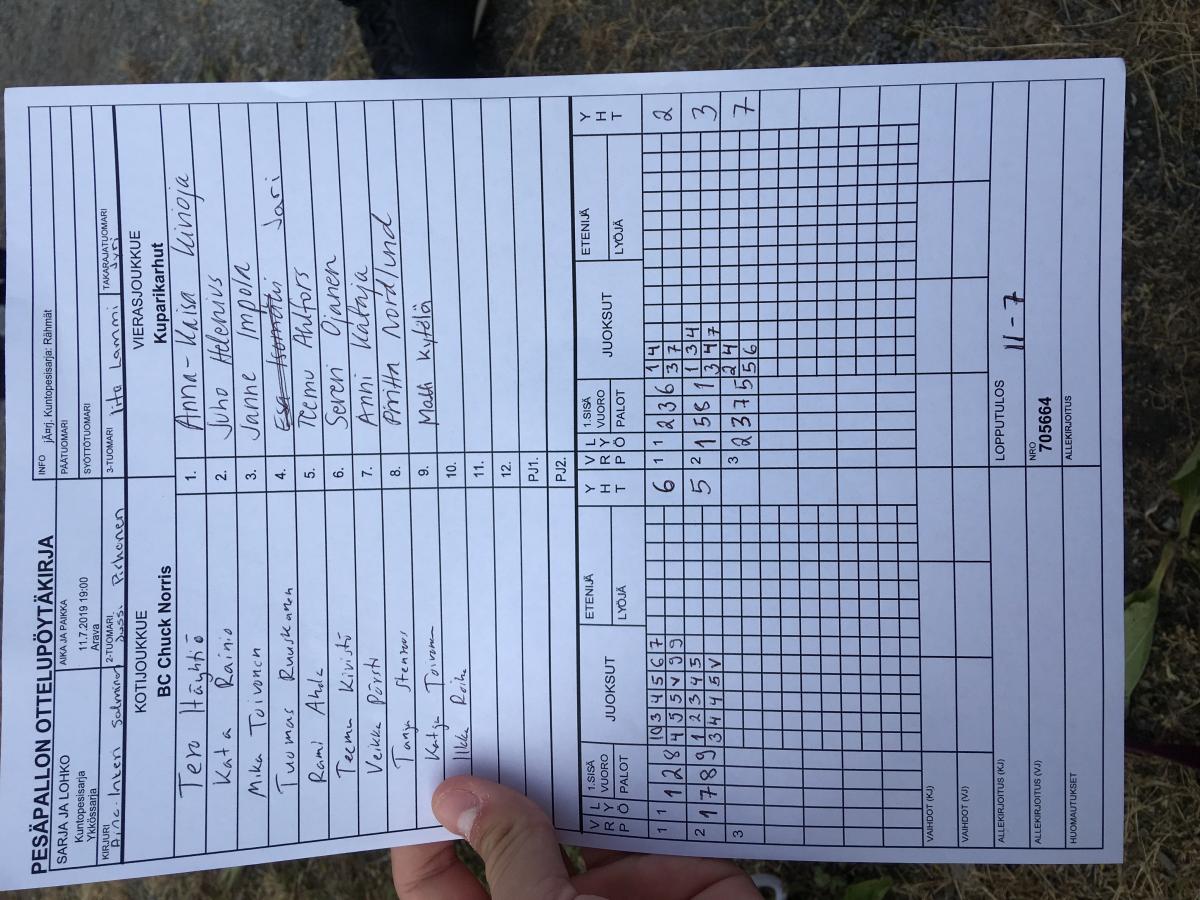 PESÄPALLON OTTELUPÖYTÄKIRJA
SARJA JA LOHKO
Kuntopesisarja
Ykkössarja
AIKA JA PAIKKA
11.7.2019 19:00
Arava
INFO jÃ¤rj. Kuntopesisarja: Rähmät
PÄÄTUOMARI
SYÖTTÖTUOMARI
KIRJURI
Salminen
2-TUOMARI
Jussi Pihonen
3-TUOMARI
Iita Lammi
TAKARAJATUOMARI
Jyri
KOTIJOUKKUE
BC Chuck Norris
VIERASJOUKKUE
Kuparikarhut
Tero Häyhtiö 1. Anna-Kaisa Kivioja
Kata Rainio 2. Juho Helenius
Mika Toivonen 3. Janne Impola
Tuomas Ruuskanen 4. Jari
Rami Ahola 5. Teemu Ahlfors
Teemu Kivistö 6. Severi Ojanen
Veikka Pörsti 7. Anni Kataja
Tanja Stenroos 8. Piritta Nordlund
Katja Toivonen 9. Matti Kytölä
Ilkka 10.
11.
12.
PJ1.
PJ2.
VRP LYÖ 1.SISÄ VUORO PALOT JUOKSUT ETENIJÄ LYÖJÄ YHT VRP LYÖ 1.SISÄ VUORO PALOT JUOKSUT ETENIJÄ LYÖJÄ YHT
1 1 1 2 8 10 3 4 5 6 7 6 1 1 2 3 6 1 4 2
4 5 5 V 9 9 3 7
2 1 7 8 9 1 2 3 4 5 5 2 1 5 8 1 1 3 4 3
3 4 4 5 V 3 4 7
3 3 2 3 7 5 2 4 7
5 6
VAIHDOT (KJ)
VAIHDOT (VJ)
ALLEKIRJOITUS (KJ) LOPPUTULOS 11-7
ALLEKIRJOITUS (VJ) NRO
705664
HUOMAUTUKSET ALLEKIRJOITUS